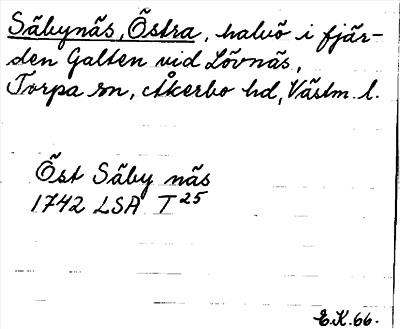 Säbynäs, Östra, halvö i fjär-
den Galten vid Lövnäs,
Torpa sn, Åkerbo hd, Västm. l.
Öst Säby näs
1742 LSA T 25
E.K. 66.